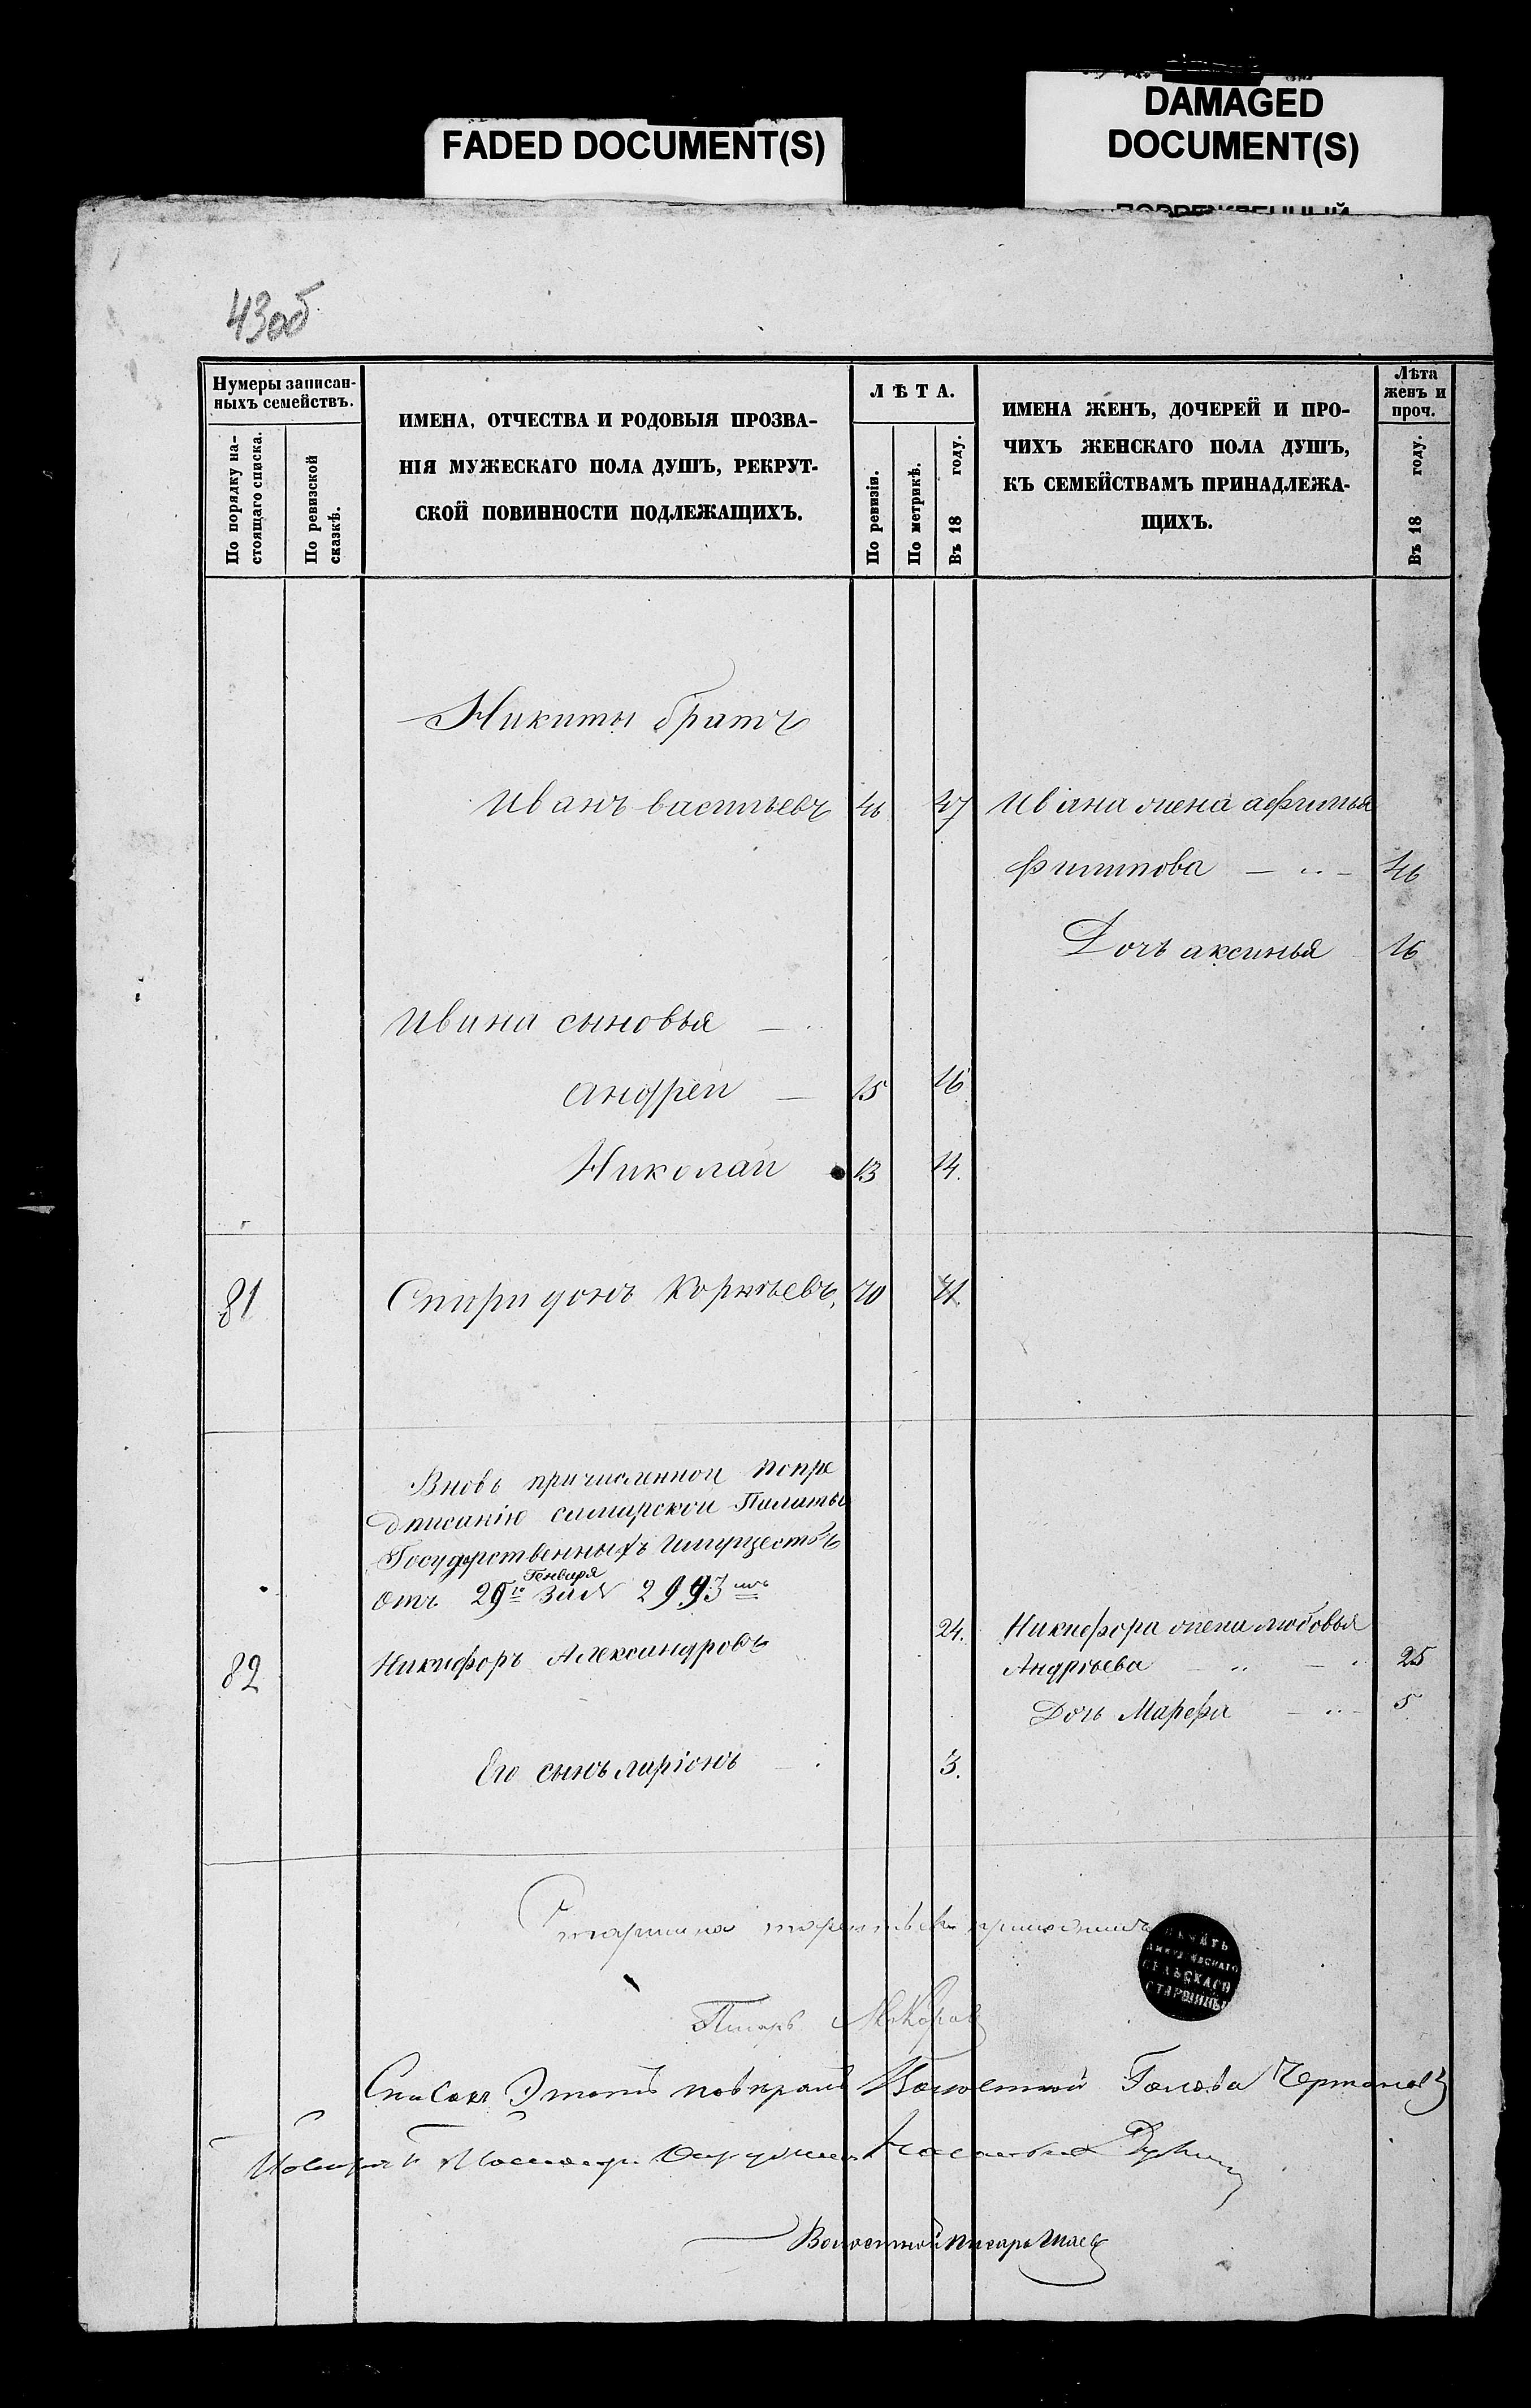 DAMAGED
DOCUMENT(S)
FADED DOCUMENT(S)
43об
Нумеры записан-
ныхъ семействъ.
По порядку на-
стоящаго списка.
По ревизской
сказкѣ.
ИМЕНА, ОТЧЕСТВА И РОДОВЫЯ ПРОЗВА-
НІЯ МУЖЕСКАГО ПОЛА ДУШЪ, РЕКРУТ-
СКОЙ ПОВИННОСТИ ПОДЛЕЖАЩИХЪ.
ЛѢТА.
По ревизіи.
По метрикѣ.
Въ 18 году.
ИМЕНА ЖЕНЪ, ДОЧЕРЕЙ И ПРО-
ЧИХЪ ЖЕНСКАГО ПОЛА ДУШЪ,
КЪ СЕМЕЙСТВАМЪ ПРИНАДЛЕЖА-
ЩИХЪ.
Лѣта
женъ и
проч.
Въ 18 году.
Никиты братъ
Иванъ васильевъ 46 47 Ивана жена афимья
Филипова — 46
Дочь аксинья 16
Ивана сыновья —
андреи — 15 16
Николаи 13 14.
81 Спиридонъ Корнѣевъ, 70 71.
Вновь причисленнои попре
дписанію самарскои Палаты
Государственныхъ имуществъ
Генваря
отъ 29го за № 2993мъ
24. Никифора жена любовья
82 Никифоръ Александровъ Андрѣева — 25
Дочь Марефа — 5
Его сынъ ларіонъ — 3.
Старшина
ПЕЧАТЬ
СЕЛЬСКАГО
СТАРШИНЫ
Писарь Макаровъ
Списокъ Этотъ повѣрялъ Волостной Голова Чертановъ
Волостной писарь